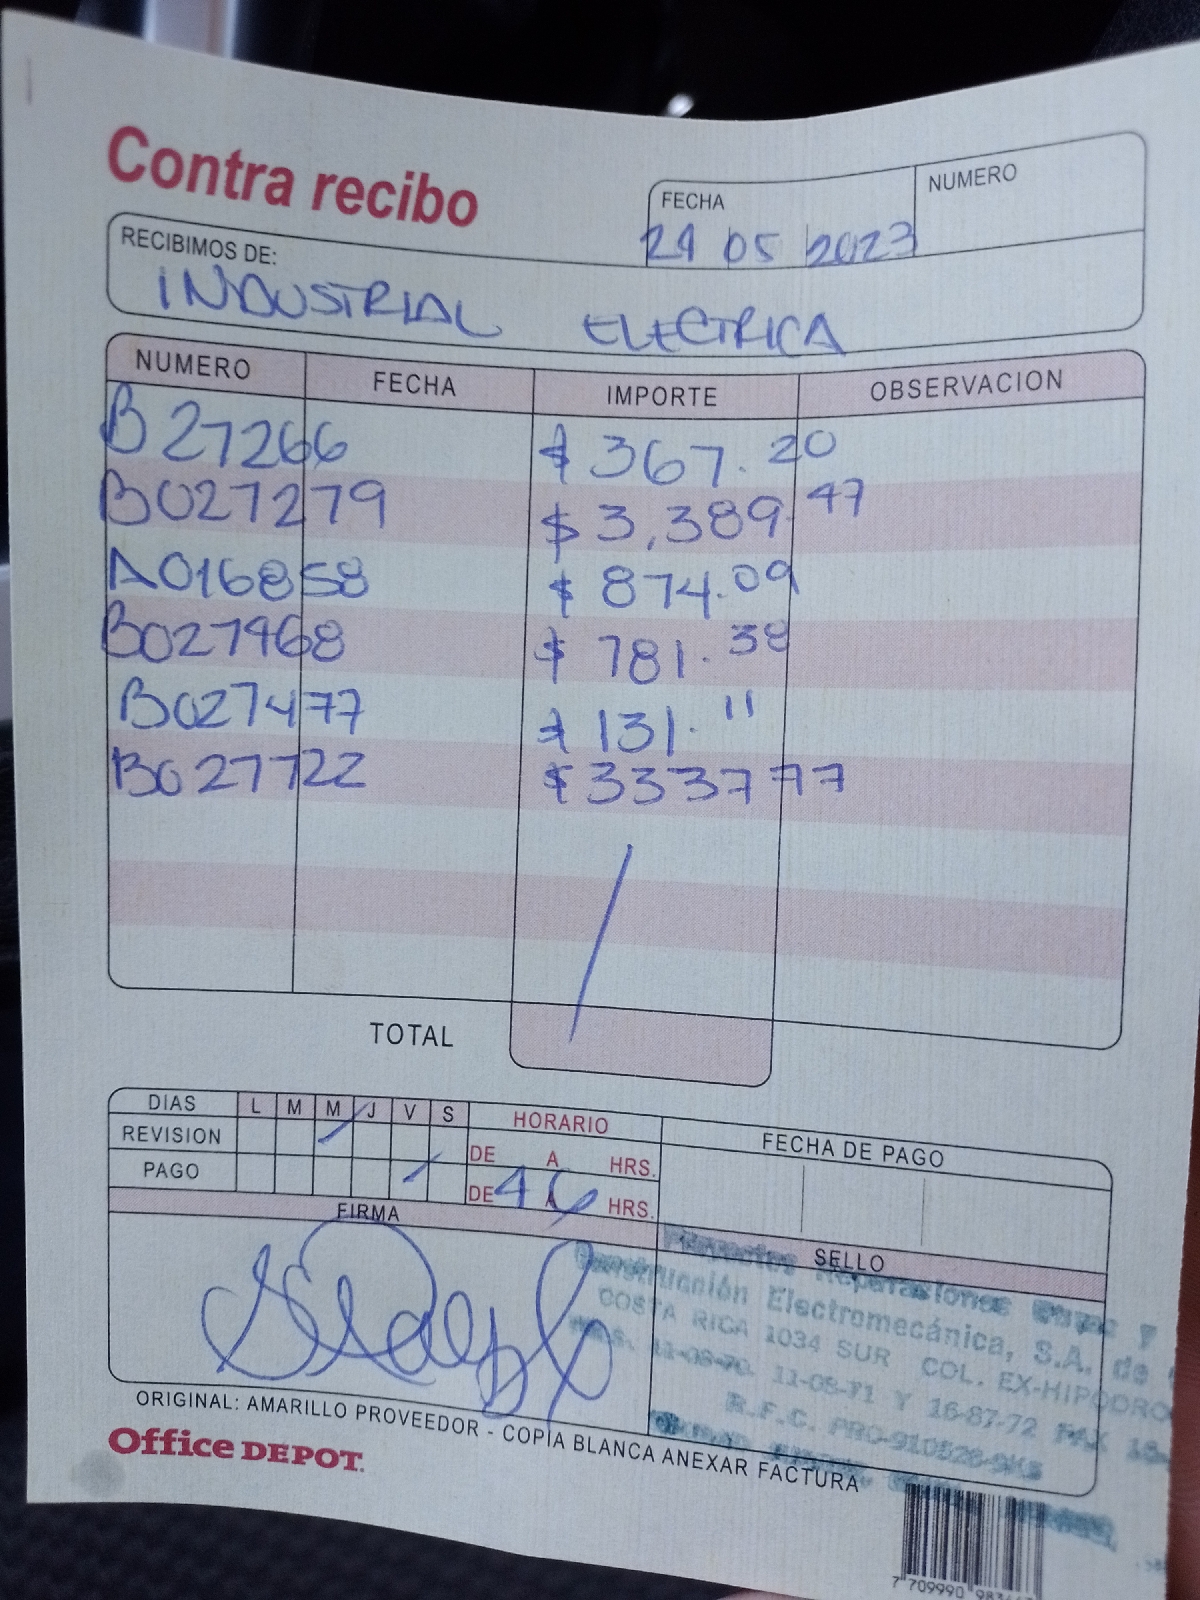 Contra recibo
FECHA
NUMERO
24 05 2023
RECIBIMOS DE:
INDUSTRIAL ELECTRICA
NUMERO FECHA IMPORTE OBSERVACION
B27266 $367.20
B027279 $3,389.47
A016858 $874.09
B027468 $781.38
B027477 $131.11
B027722 $3337 77
TOTAL
DIAS L M M J V S HORARIO FECHA DE PAGO
REVISION DE A HRS.
PAGO DE 4 A 6 HRS.
FIRMA SELLO
Proyectos Reparaciones
Construcción Electromecánica, S.A. de
COSTA RICA 1034 SUR COL. EX-HIPODRO
11-08-70. 11-08-71 Y 16-87-72 FAX
ORIGINAL: AMARILLO PROVEEDOR - COPIA BLANCA ANEXAR FACTURA
Office DEPOT.
7 709990